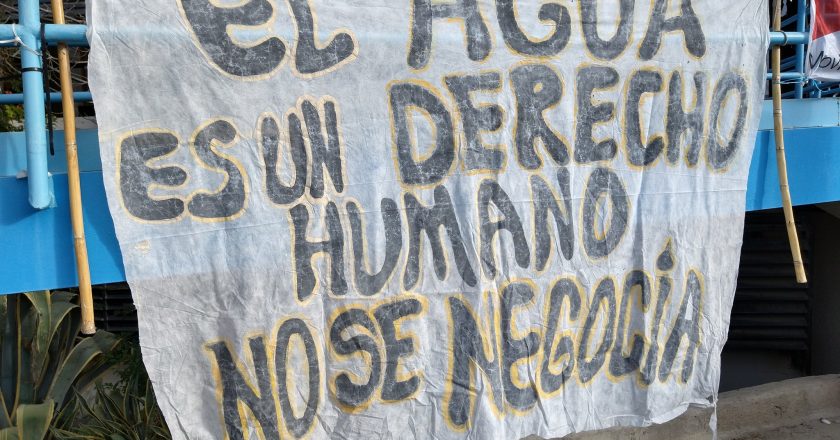 EL AGUA
ES UN DERECHO
HUMANO
NO SE NEGOCÍA